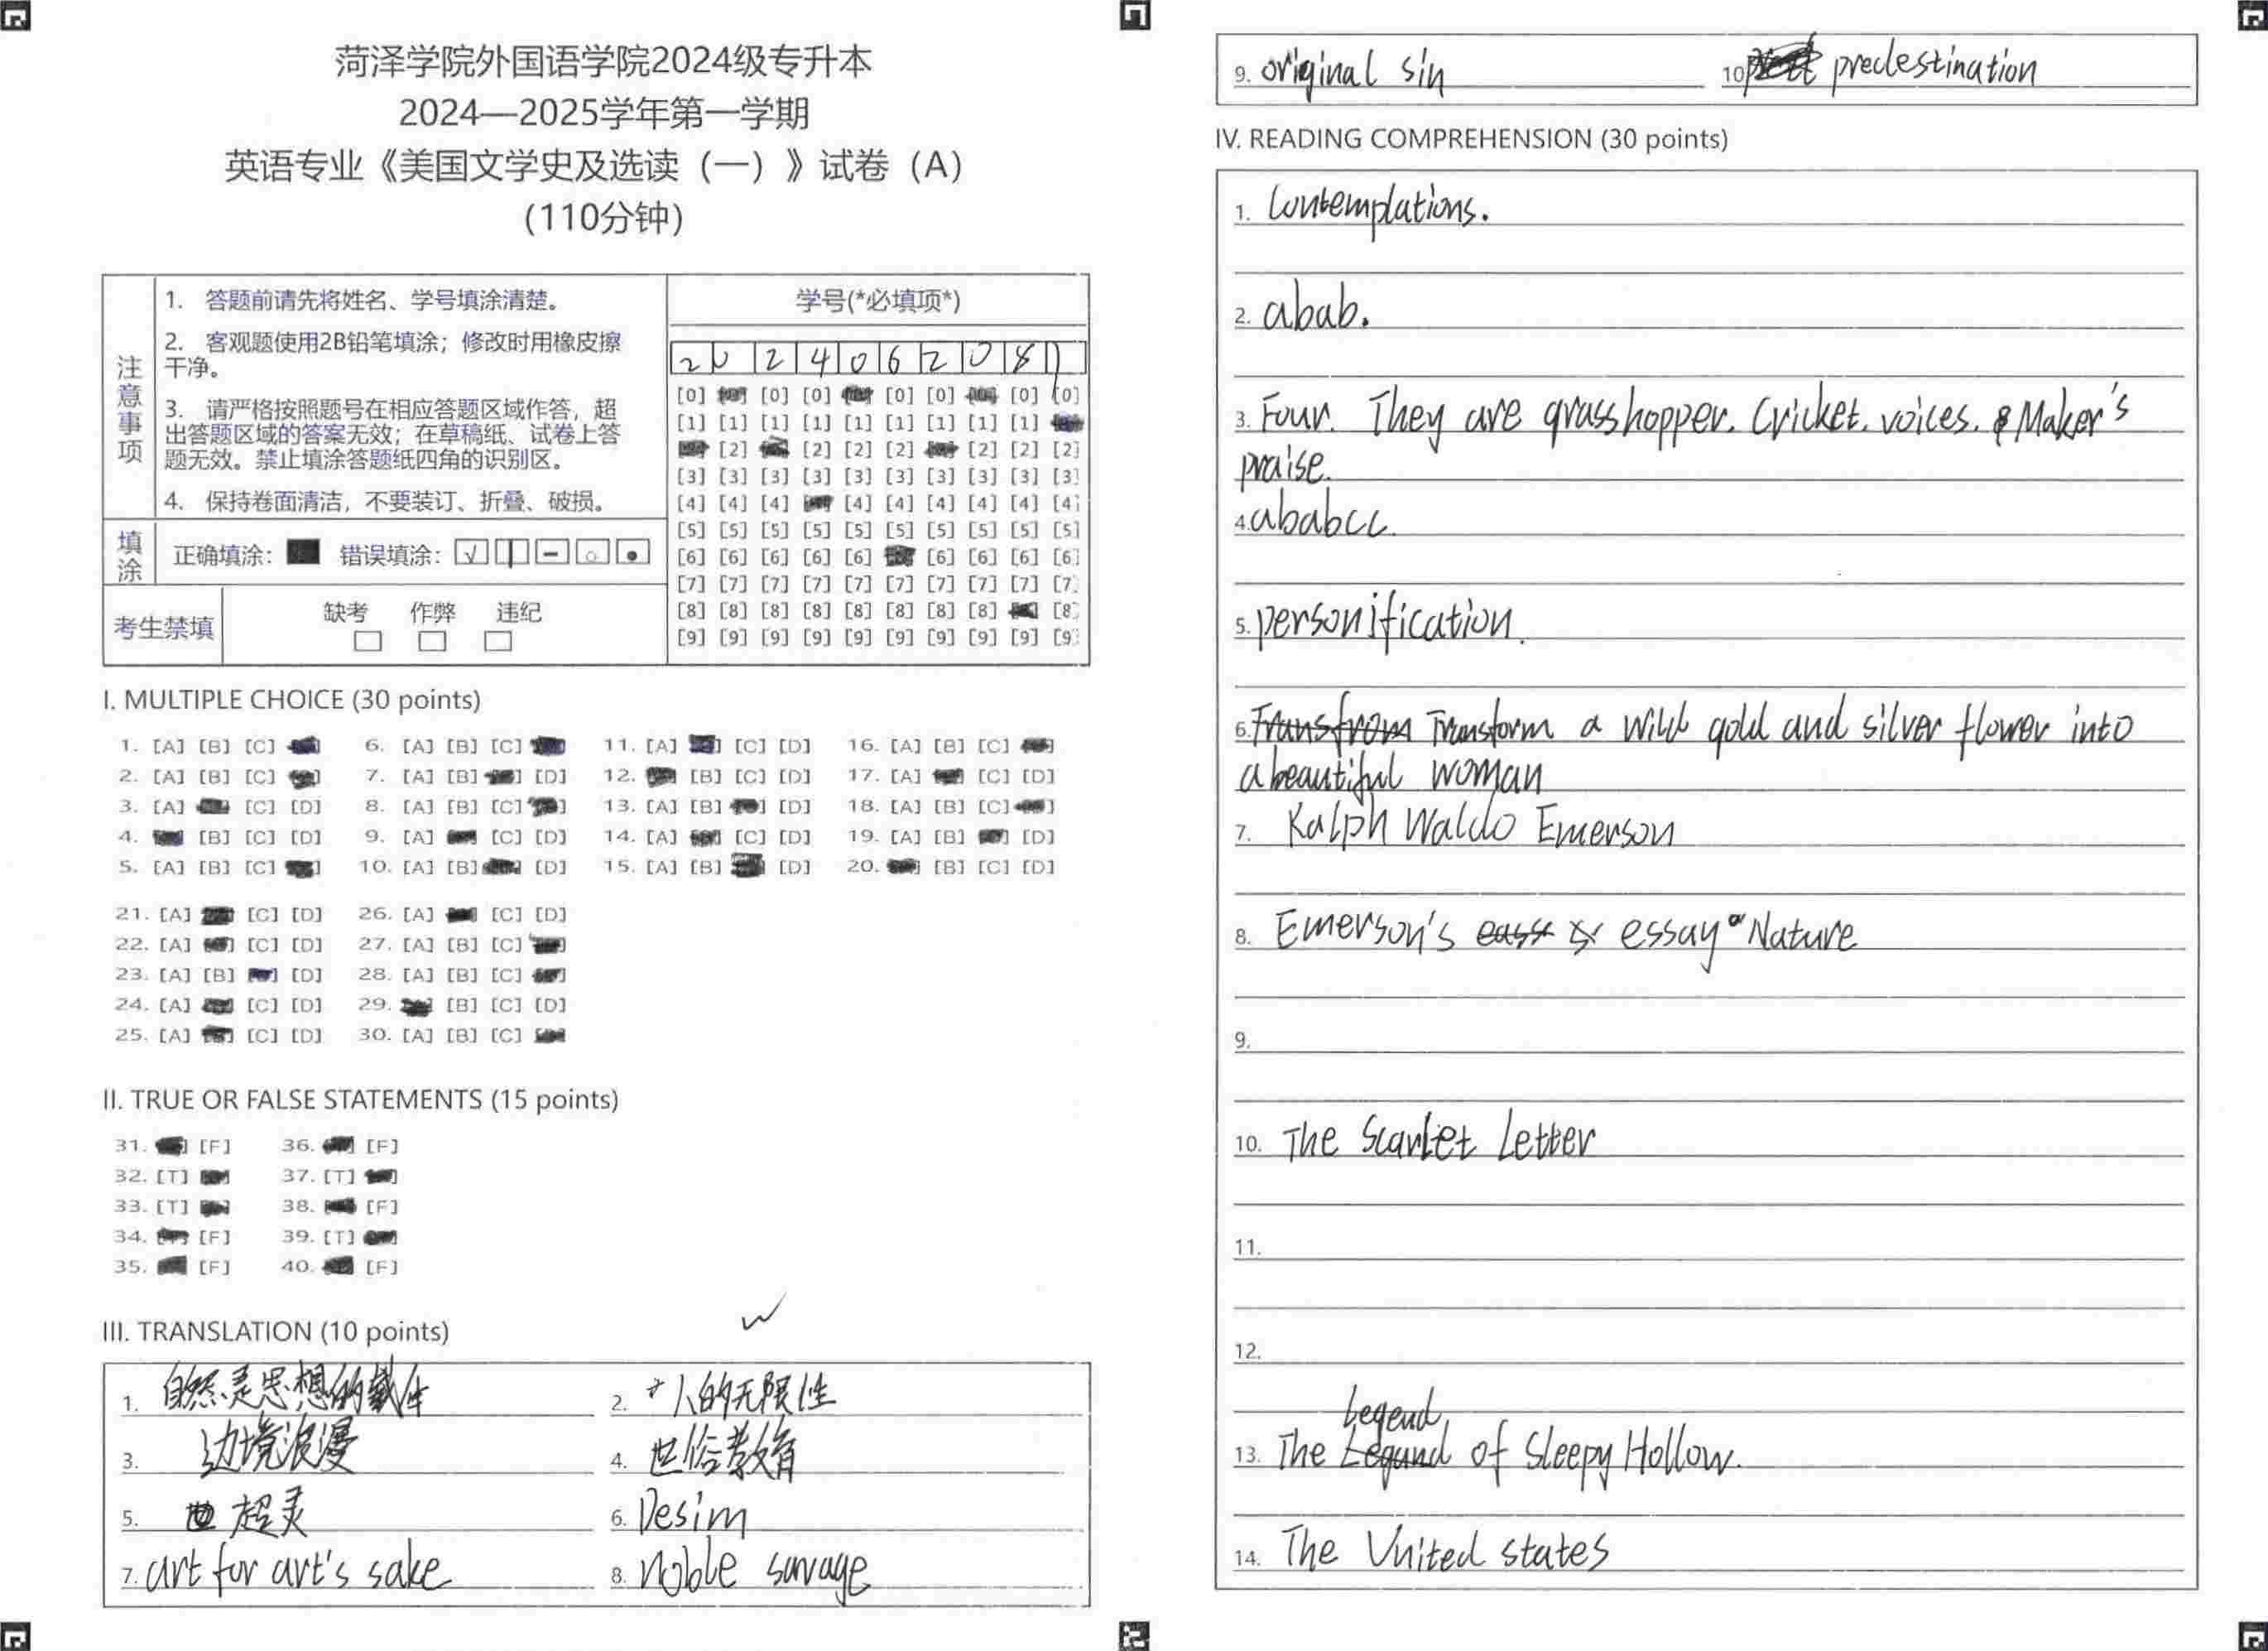 菏泽学院外国语学院2024级专升本
2024—2025学年第一学期
英语专业《美国文学史及选读（一）》试卷（A）
(110分钟)
注意事项
1. 答题前请先将姓名、学号填涂清楚。
2. 客观题使用2B铅笔填涂；修改时用橡皮擦
干净。
3. 请严格按照题号在相应答题区域作答，超
出答题区域的答案无效；在草稿纸、试卷上答
题无效。禁止填涂答题纸四角的识别区。
4. 保持卷面清洁，不要装订、折叠、破损。
填涂
正确填涂： 错误填涂：
考生禁填
缺考 作弊 违纪
学号(*必填项*)
2 0 2 4 0 6 2 0 8 1
[0] [0] [0] [0] [0] [0] [0]
[1] [1] [1] [1] [1] [1] [1] [1] [1]
[2] [2] [2] [2] [2] [2] [2]
[3] [3] [3] [3] [3] [3] [3] [3] [3] [3]
[4] [4] [4] [4] [4] [4] [4] [4] [4]
[5] [5] [5] [5] [5] [5] [5] [5] [5] [5]
[6] [6] [6] [6] [6] [6] [6] [6] [6]
[7] [7] [7] [7] [7] [7] [7] [7] [7] [7]
[8] [8] [8] [8] [8] [8] [8] [8] [8]
[9] [9] [9] [9] [9] [9] [9] [9] [9] [9]
I. MULTIPLE CHOICE (30 points)
1. [A] [B] [C] 6. [A] [B] [C] 11. [A] [C] [D] 16. [A] [B] [C]
2. [A] [B] [C] 7. [A] [B] [D] 12. [B] [C] [D] 17. [A] [C] [D]
3. [A] [C] [D] 8. [A] [B] [C] 13. [A] [B] [D] 18. [A] [B] [C]
4. [B] [C] [D] 9. [A] [C] [D] 14. [A] [C] [D] 19. [A] [B] [D]
5. [A] [B] [C] 10. [A] [B] [D] 15. [A] [B] [D] 20. [B] [C] [D]
21. [A] [C] [D] 26. [A] [C] [D]
22. [A] [C] [D] 27. [A] [B] [C]
23. [A] [B] [D] 28. [A] [B] [C]
24. [A] [C] [D] 29. [B] [C] [D]
25. [A] [C] [D] 30. [A] [B] [C]
II. TRUE OR FALSE STATEMENTS (15 points)
31. [F] 36. [F]
32. [T] 37. [T]
33. [T] 38. [F]
34. [F] 39. [T]
35. [F] 40. [F]
III. TRANSLATION (10 points)
1. 自然是思想的载体 2. 个人的无限性
3. 边境浪漫 4. 世俗教育
5. 超灵 6. Desim
7. art for art's sake 8. Noble savage
9. original sin 10. predestination
IV. READING COMPREHENSION (30 points)
1. Contemplations.
2. abab.
3. Four. They are grasshopper. Cricket. voices. Maker's
praise.
4. ababcc.
5. personification.
6. Transfrom Transform a wild gold and silver flower into
a beautiful woman
7. Kalph Waldo Emerson
8. Emerson's essay Nature
9.
10. The Scarlet Letter
11.
12.
Legend
13. The Legund of Sleepy Hollow.
14. The United states